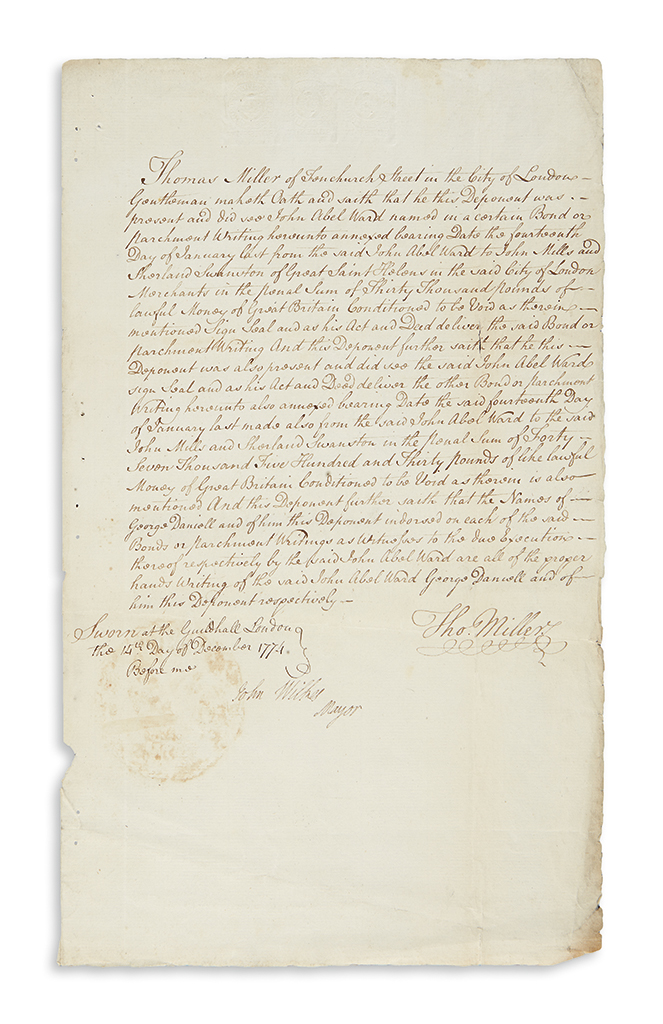 Thomas Miller of Fenchurch Street in the City of London
Gentleman maketh Oath and saith that he this Deponent was
present and did see John Abel Ward named in a certain Bond or
Parchment Writing hereunto annexed bearing Date the fourteenth
Day of January last from the said John Abel Ward to John Mills and
Sherland Swanston of Great Saint Helens in the said City of London
Merchants in the Penal Sum of Thirty Thousand Pounds of
lawful Money of Great Britain Conditioned to be Void as therein
mentioned Sign Seal and as his Act and Deed deliver the said Bond or
Parchment Writing And this Deponent further saith that he this
Deponent was also present and did see the said John Abel Ward
sign Seal and as his Act and Deed deliver the other Bond or Parchment
Writing hereunto also annexed bearing Date the said fourteenth Day
of January last made also from the said John Abel Ward to the said
John Mills and Sherland Swanston in the Penal Sum of Forty
Seven Thousand Five Hundred and Thirty Pounds of like lawful
Money of Great Britain Conditioned to be Void as therein is also
mentioned And this Deponent further saith that the Names of
George Daniell and of him this Deponent indorsed on each of the said
Bonds or Parchment Writings as Witnesses to the due Execution
thereof respectively by the said John Abel Ward are all of the proper
hands Writing of the said John Abel Ward George Daniell and of
him this Deponent respectively
Sworn at the Guildhall London
the 14th Day of December 1774.
Before me
Tho. Miller
John Wilkes
Mayor